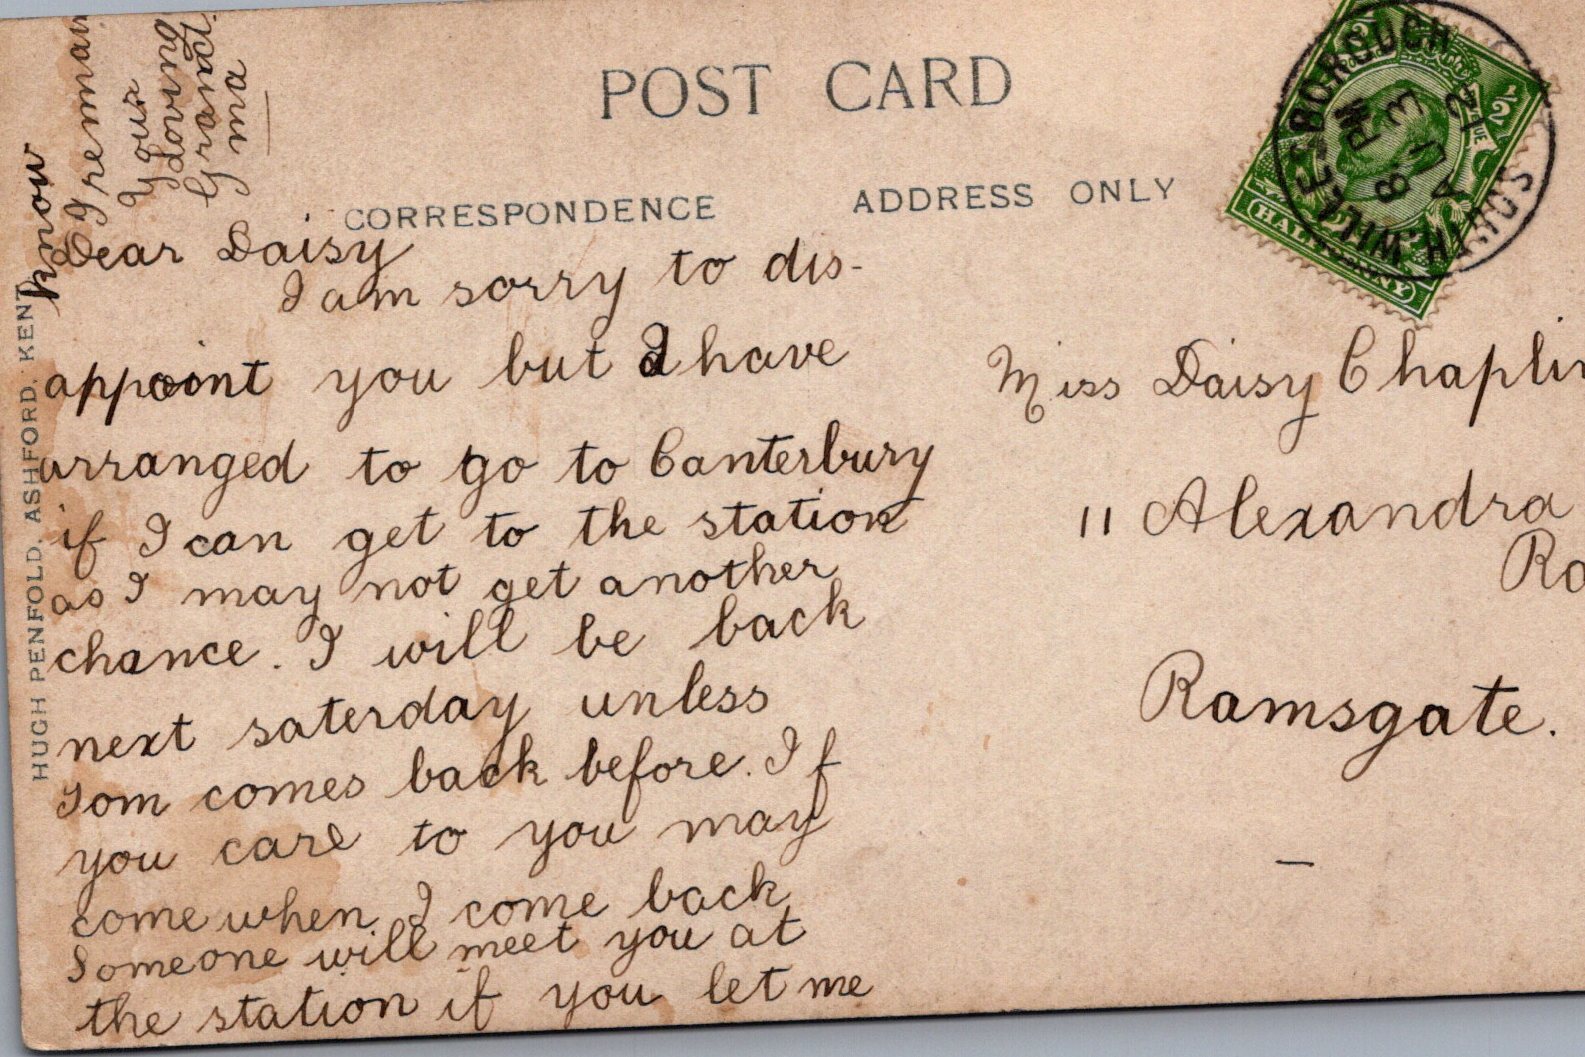 POST CARD
CORRESPONDENCE
ADDRESS ONLY
HUGH PENFOLD, ASHFORD, KENT.
SOUTH WILLESBOROUGH
8. PM
AU 3
12
HALFPENNY
Dear Daisy
I am sorry to dis-
appoint you but I have
arranged to go to Canterbury
if I can get to the station
as I may not get another
chance. I will be back
next saterday unless
Tom comes back before. If
you care to you may
come when I come back
Someone will meet you at
the station if you let me
know
I remain
Your
loving
Grand
ma
Miss Daisy Chaplin
11 Alexandra
Ro
Ramsgate.